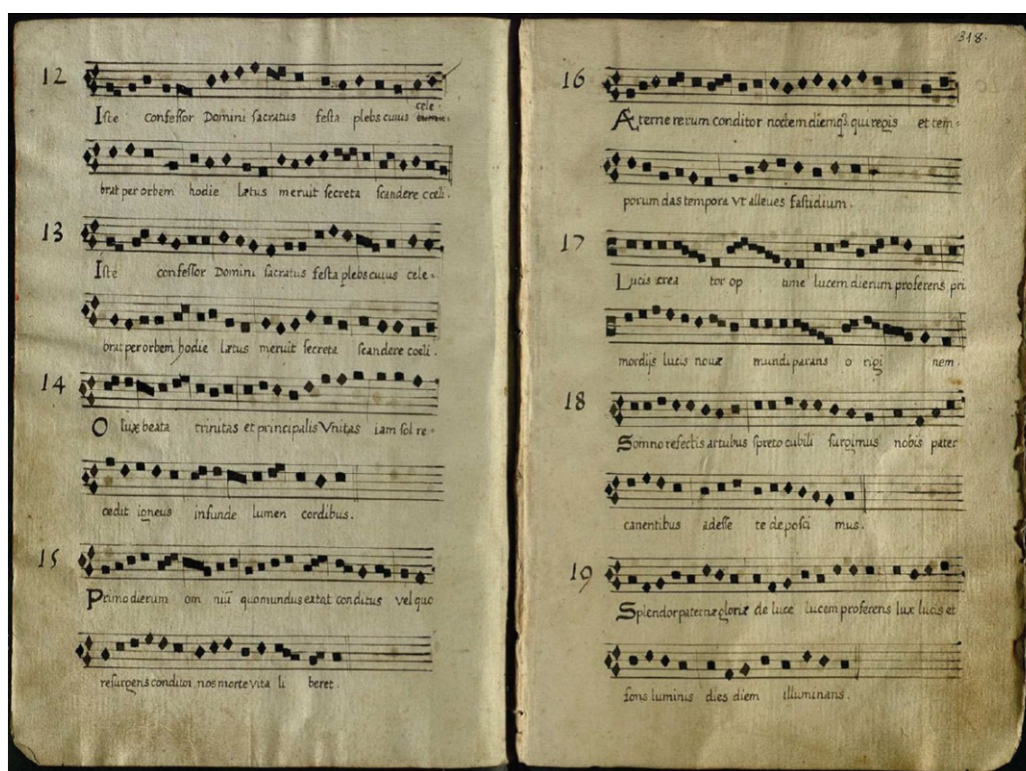 12
Iste confessor Domini sacratus festa plebs cuius cele-
brat per orbem hodie lætus meruit secreta scandere cœli.
13
Iste confessor Domini sacratus festa plebs cuius cele-
brat per orbem hodie lætus meruit secreta scandere cœli.
14
O lux beata trinitas et principalis Vnitas iam sol re-
cedit igneus infunde lumen cordibus.
15
Primo dierum om niũ quo mundus extat conditus vel quo
resurgens conditor nos morte vita li beret.
318.
16
Æterne rerum conditor noctem diemq3. qui regis et tem-
porum das tempora vt alleues fastidium.
17
Lucis crea tor op time lucem dierum proferens pri
mordijs lucis nouæ mundi parans o rigi nem.
18
Somno refectis artubus spreto cubili surgimus nobis pater
canentibus adesse te deposci mus.
19
Splendor paternæ gloriæ de luce lucem proferens lux lucis et
fons luminis dies diem illuminans.